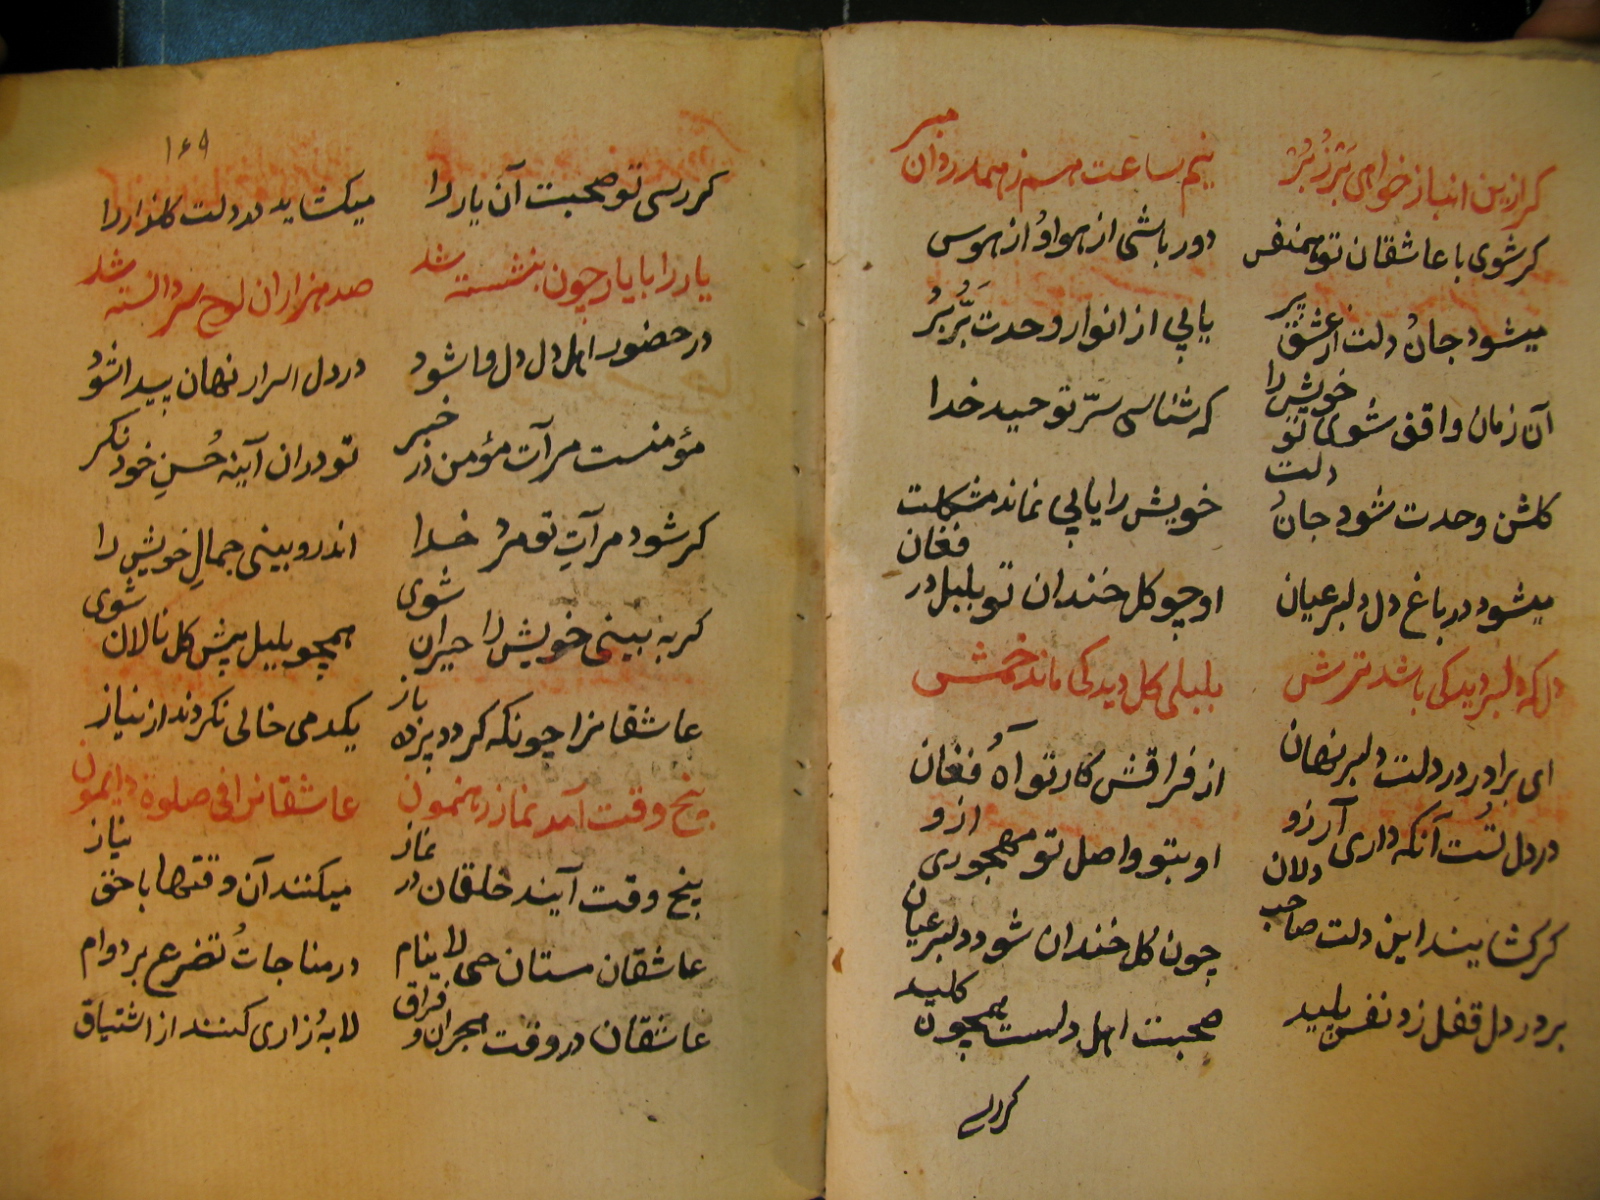 کر ازین انباز خواهی بَر زُ بُرْ نیم ساعت هم ز همدردان مبر
کر شوی با عاشقان تو همنفس دور باشی از هوا وُ از هوس
میشود جانُ دلت از عشق پر یابی از انوار وحدت بَرُّ بُرْ
آن زمان واقف شوی تو خویش را که شناسی سرّ توحید خدا
کلشن وحدت شود جانُ دلت خویش را یابی نماند مشکلت
میشود در باغ دل دلبر عیان او چو کل خندان تو بلبل در فغان
دل که دلبر دید کی باشد ترش بلبلی کل دید کی ماند خمش
ای برادر در دلت دلبر نهان از فراقش کار تو آهُ فغان
در دل تُست آنکه داری آرزو او بتو واصل تو مهجوری ازو
کر کشایند این دلت صاحب دلان چون کل خندان شود دلبر عیان
بر در دل قفل زد نفس پلید صحبت اهل دلست همچون کلید
کر رسی
۱۶۹
کر رسی تو صحبت آن یار را میکشاید در دلت کلزار را
یار را با یار چون بنشسته شد صد هزاران لوح سر دانسته شد
در حضور اهل دل دل وا شود در دل اسرار نهان پیدا شود
مؤمنست مرآت مؤمن در خبر تو در ان آینه حُسنِ خود نکر
کر شود مرآتِ تو مرد خدا اندرو بینی جمالِ خویش را
کر به بینی خویش را حیران شوی همچو بلبل پیش کل نالان شوی
عاشقانرا چونکه کردد پرده باز یکدمی خالی نکردند از نیاز
پنج وقت آمد نماز رهنمون عاشقانرا فی صلوة دایمون
پنج وقت آیند خلقان در نماز میکنند آن وقتها با حق نیاز
عاشقان مستان حی لا ینام در مناجاتُ تضرع بر دوام
عاشقان در وقت هجران و فراق لابهُ زاری کنند از اشتیاق